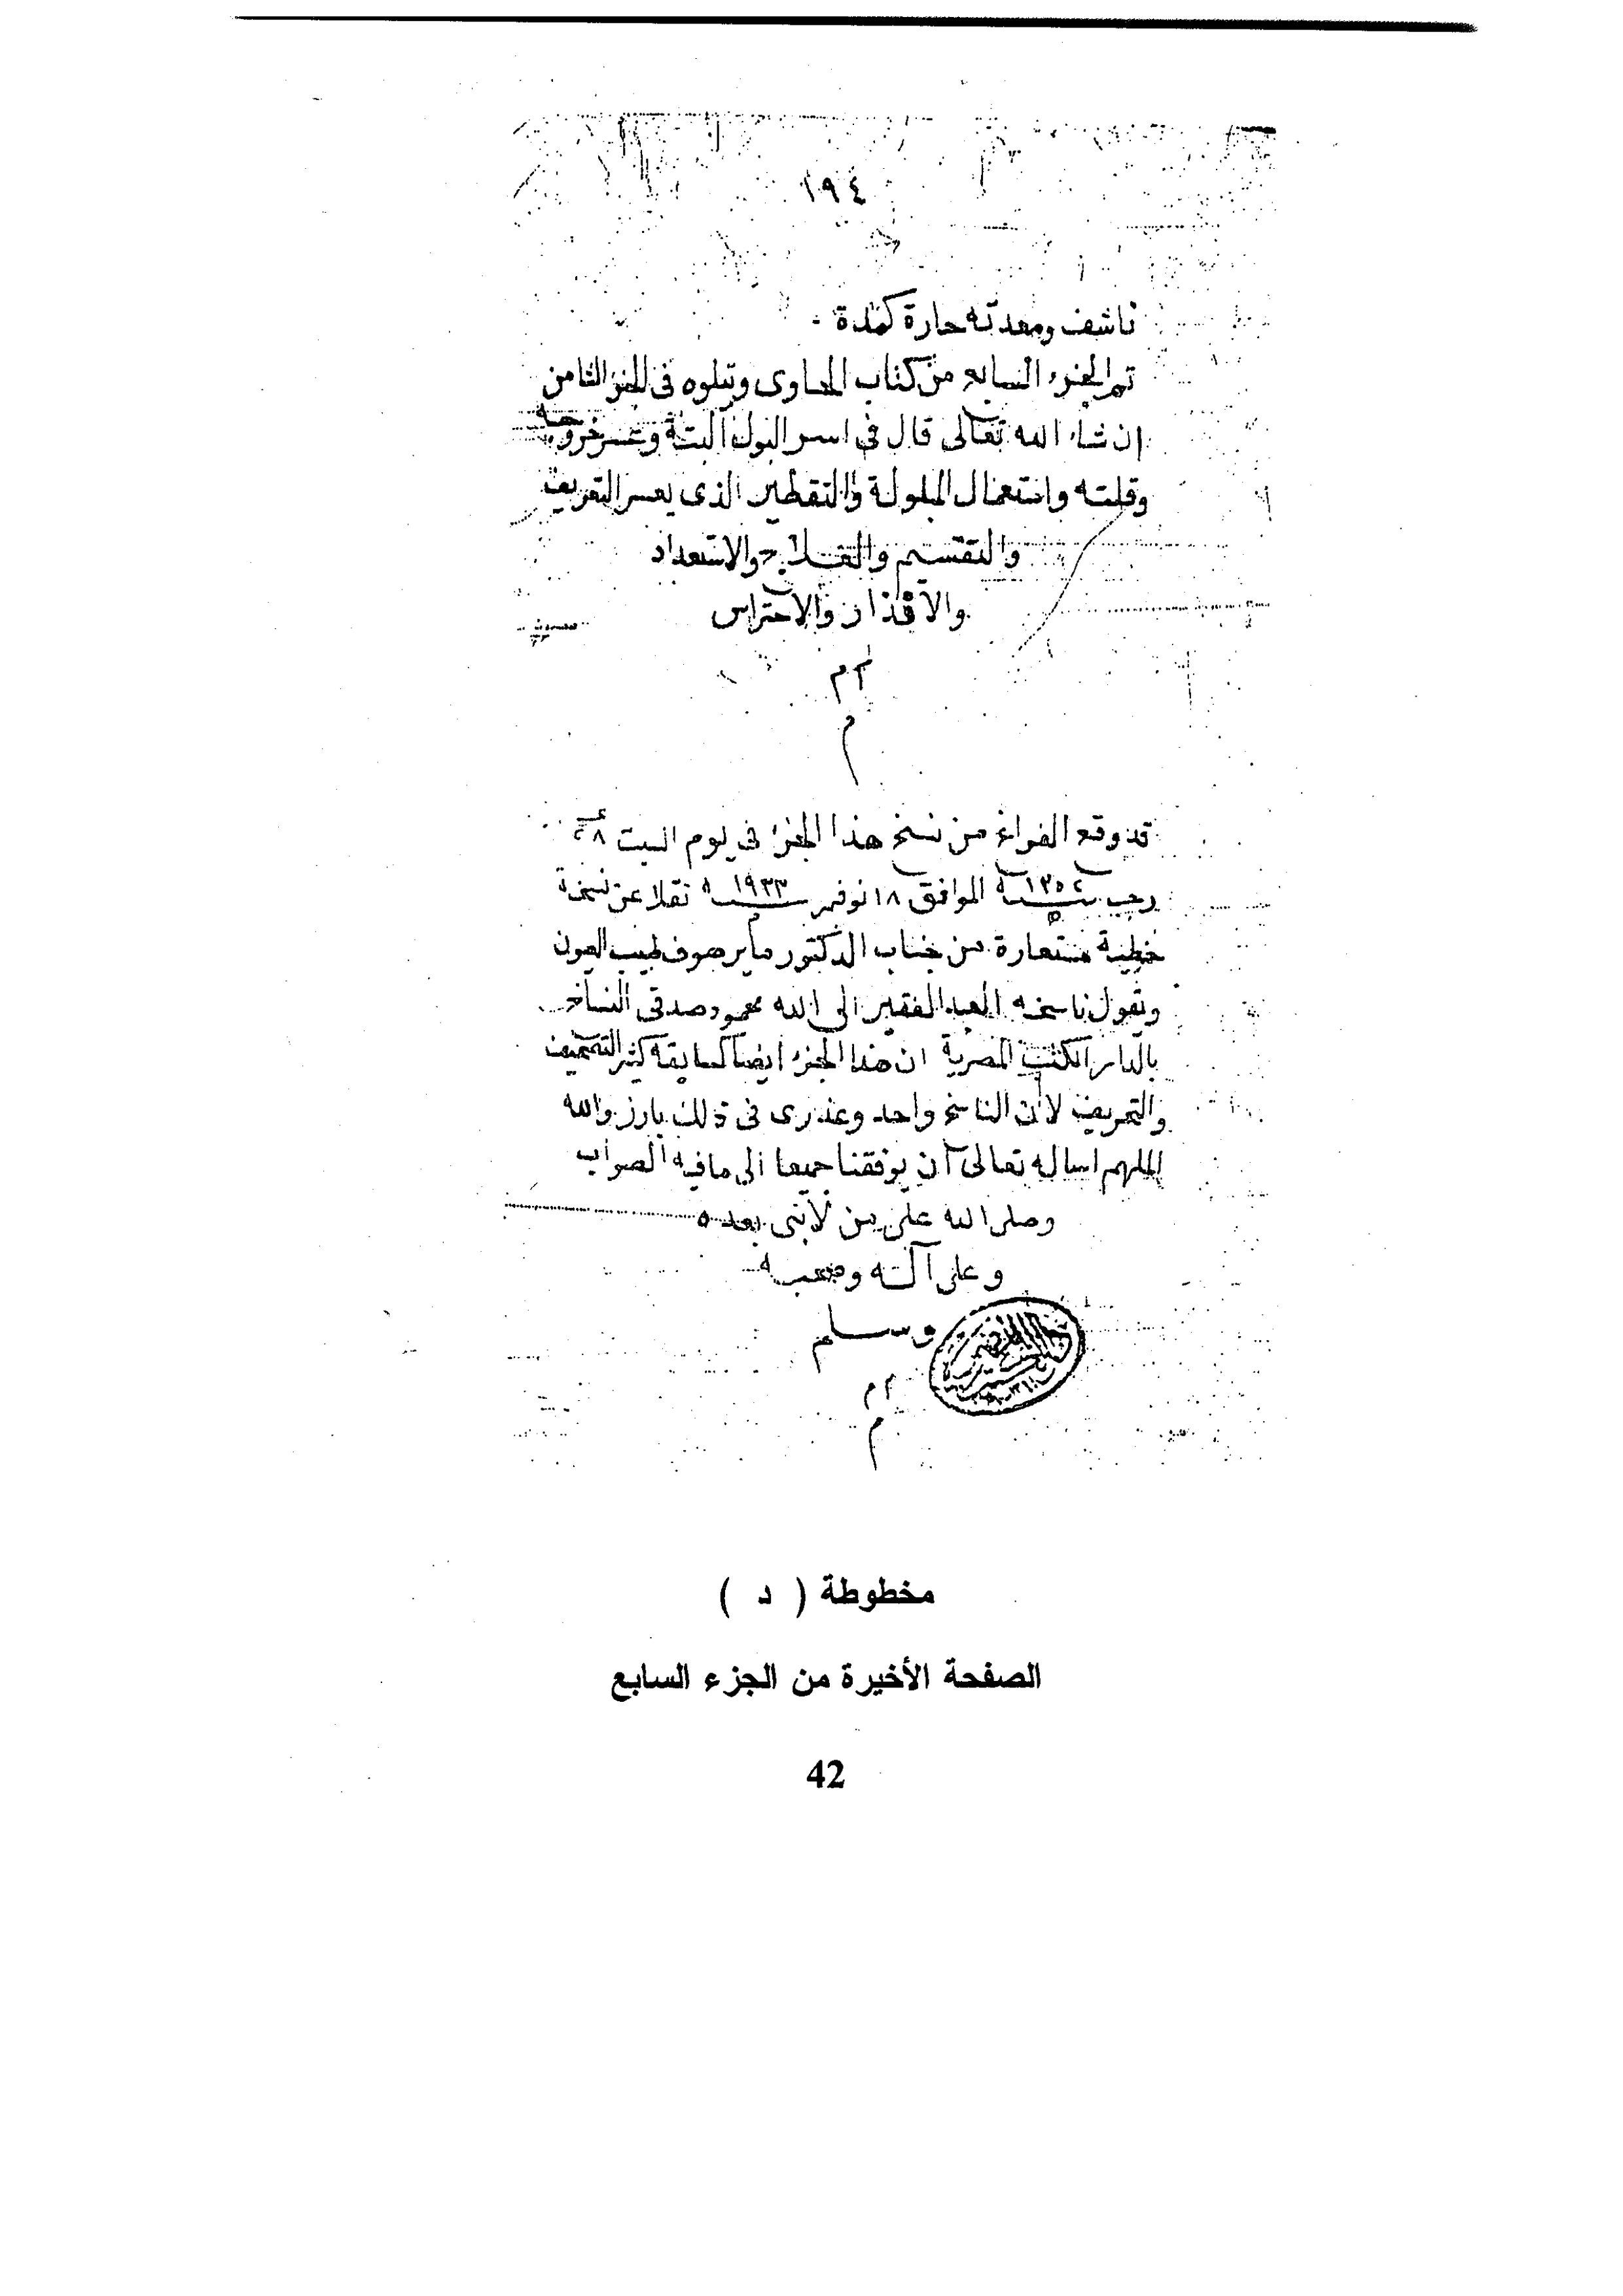 ١٩٤
ناشف ومعدته حارة كمدة .
تم الجزء السابع من كتاب الحاوى ويتلوه فى الجزء الثامن
ان شاء الله تعالى قال فى اسر البول البتة وعسر خروجه
وقلته وانتعمال المبلولة والتقطير الذى يعسر التعريف
والتقسيم والعلاج والاستعداد
والاقذار والاحتراس
٢م
م
قد وقع الفراغ من نسخ هذا الجزء فى يوم السبت ٢٨
رجب سنة ١٣٥٢ الموافق ١٨ نوفمبر سنة ١٩٣٣ نقلا عن نسخة
خطية مستعارة من جناب الدكتور ماير صوف طبيب العيون
ويقول ناسخه العبد الفقير الى الله محمود صدقى النساخ
بالدار الكتب المصرية ان هذا الجزء ايضا كسابقه كثير التصحيف
والتحريف لأن الناسخ واحد وعذرى فى ذلك بارز والله
الملهم اساله تعالى أن يوفقنا جميعا الى ما فيه الصواب
وصلى الله على من لا نبى بعده
وعلى آله وصحبه
وسلم
٢م
م
مخطوطة ( د )
الصفحة الأخيرة من الجزء السابع
42